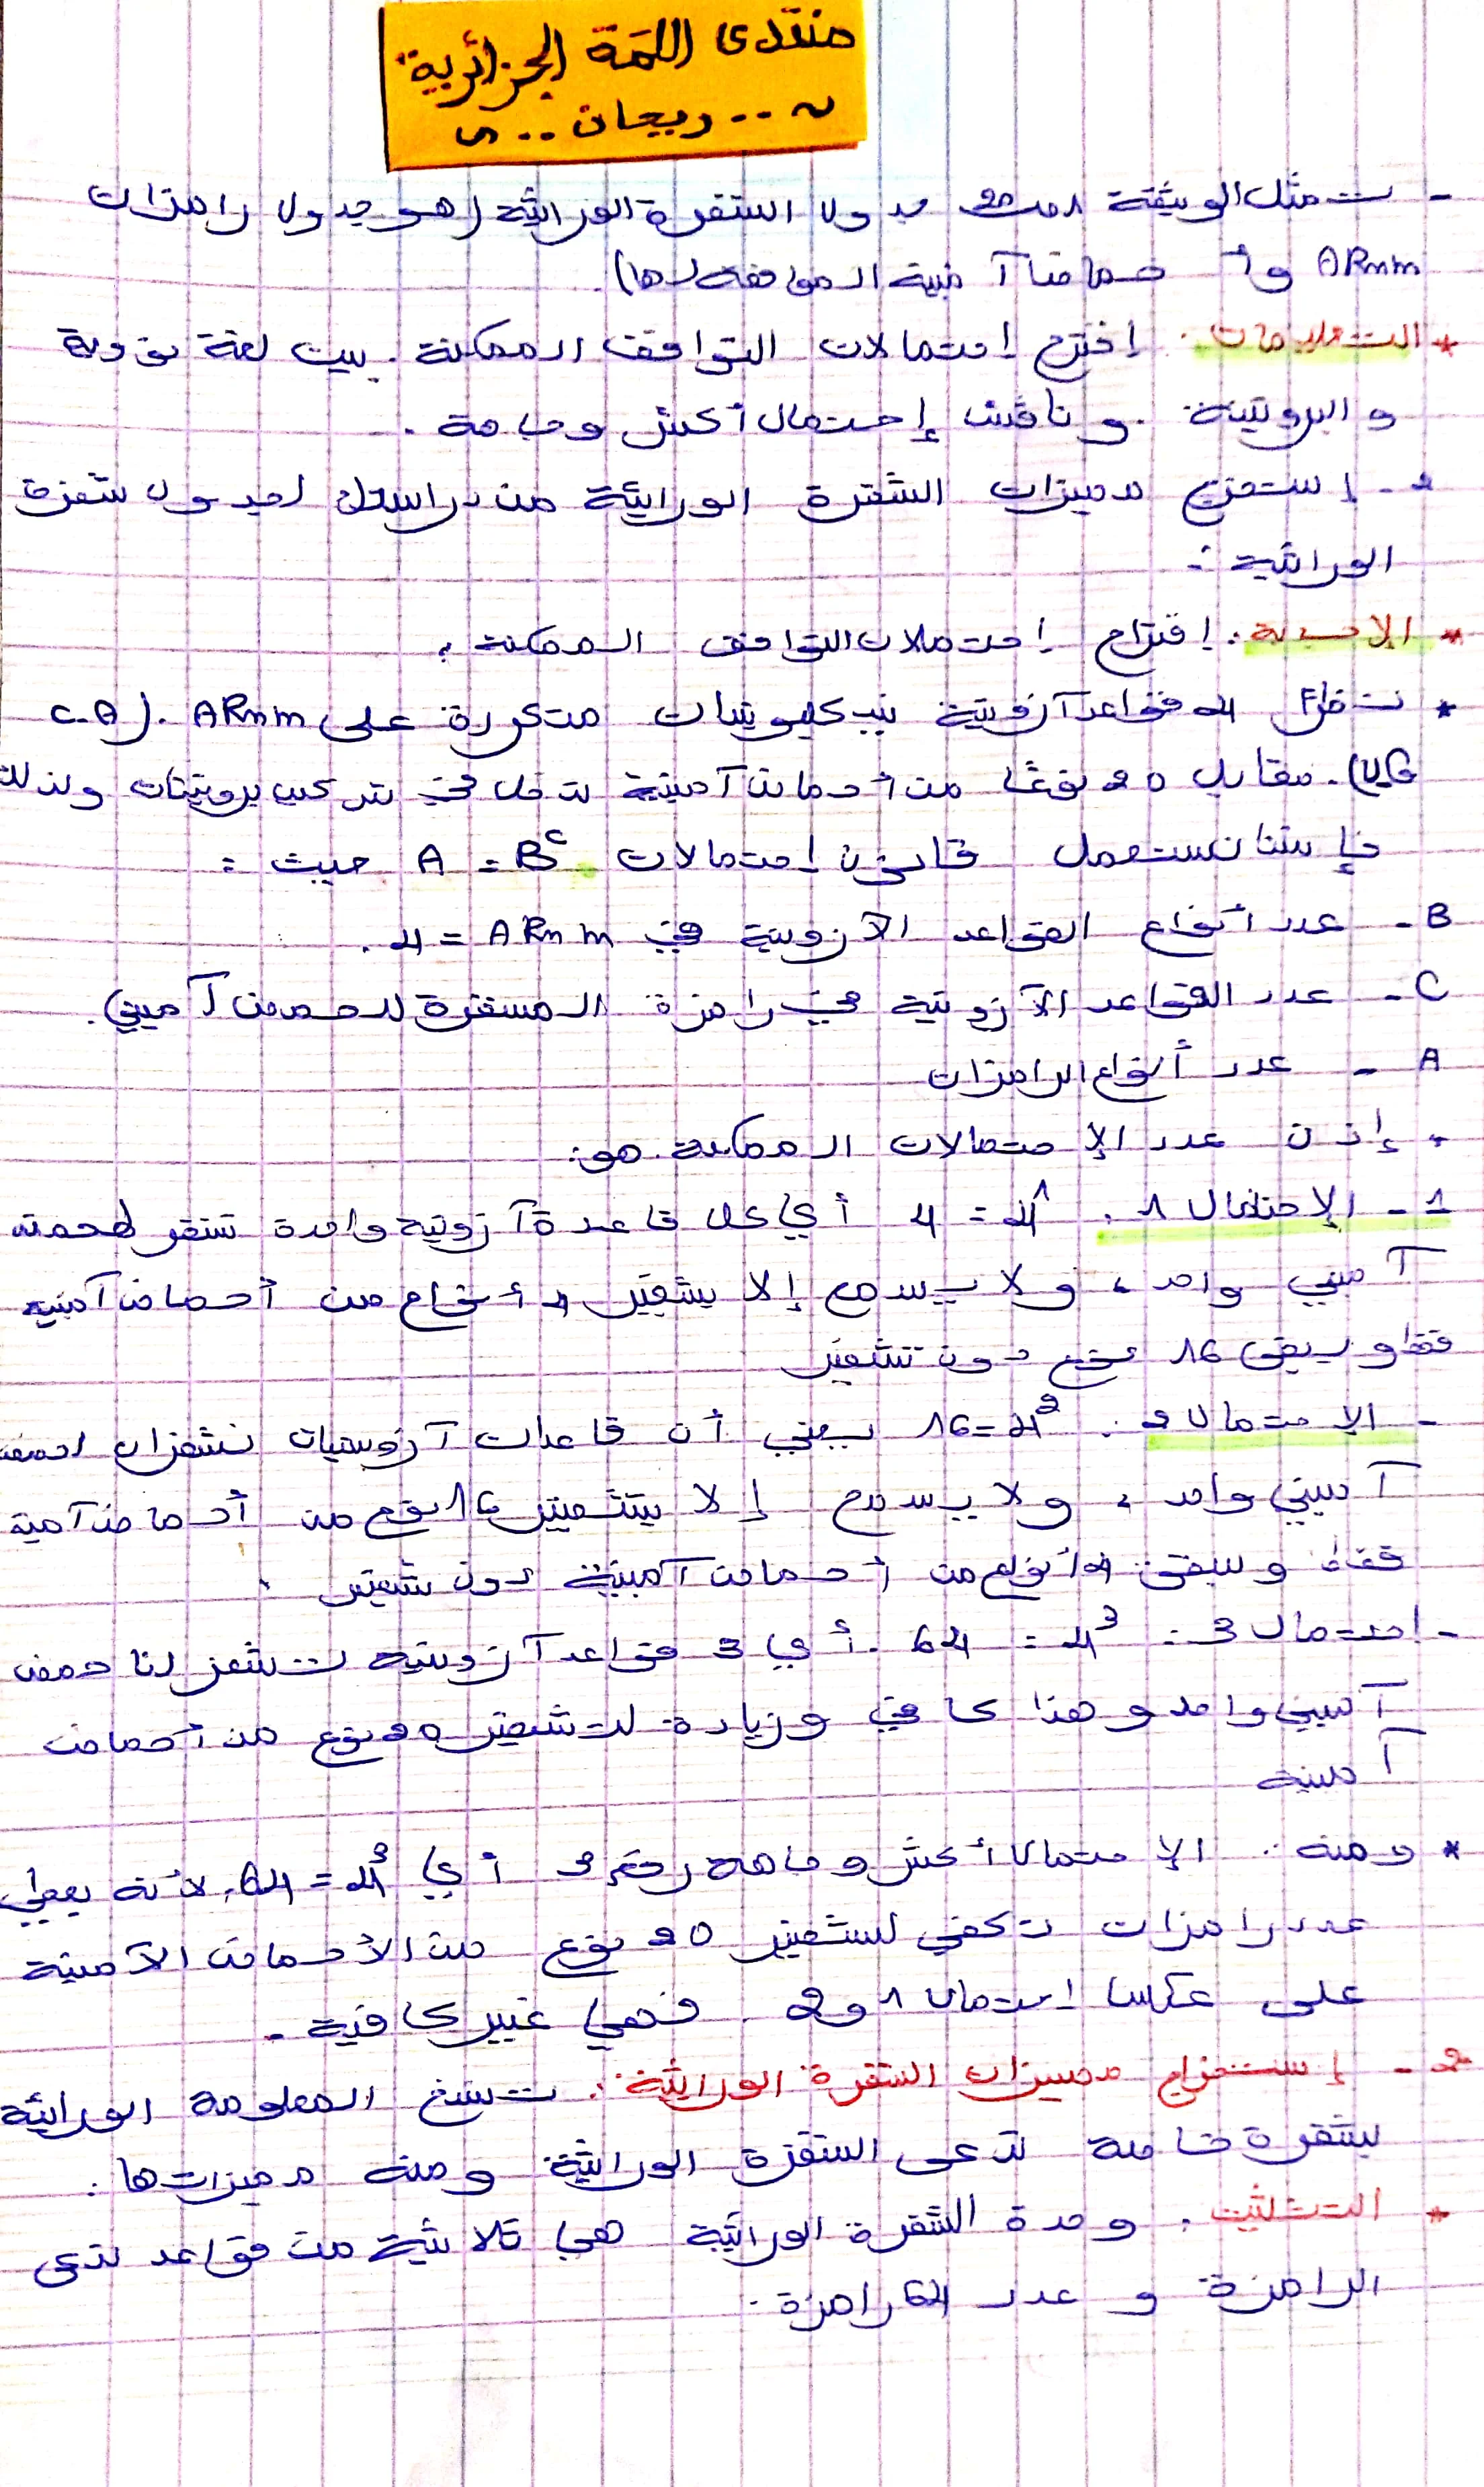 منتدى اللمة الجزائرية
~ .. ريحان .. ~
- تمثل الوثيقة جدول الشفرة الوراثية (هو جدول رامزات
ARNm و أحماض آمنية الموافقة لها).
* التعليمات: إقترح إحتمالات التوافق الممكنة بين لغة نووية
و البروتينية و ناقش إحتمال أكثر وجاهة.
2- إستخرج مميزات الشفرة الوراثية من دراستك لجدول شفرة
الوراثية:
* الإجابة: إقتراح إحتمالات التوافق الممكنة:
* 4 قواعد آزوتية متكررة على ARNm. (C.A
U,G). مقابل 20 نوعا من أحماض آمينية تدخل في تركيب بروتينات ولذلك
فإننا نستعمل قانون إحتمالات A = B^c حيث:
B- عدد أنواع القواعد الآزوتية في ARNm = 4.
C- عدد القواعد الآزوتية في رامزة المشفرة للحمض آميني.
A - عدد أنواع الرامزات
* إذن عدد الإحتمالات الممكنة هو:
1- الإحتمال 1: 4¹ = 4 أي كل قاعدة آزوتية واحدة تشفر لحمض
آميني واحد، ولا يسمح إلا بتشفير 4 أنواع من أحماض آمنية
فقط و يبقى 16 نوع دون تشفير
- الإحتمال 2: 4² = 16 يعني أن قاعدات آزوتيات تشفران لحمض
آميني واحد، ولا يسمح إلا بتشفير 16 نوع من أحماض آمنية
فقط وتبقى 4 أنواع من أحماض آمينية دون تشفير.
- إحتمال 3: 4³ = 64. أي 3 قواعد آزوتية تشفر لنا حمض
آميني واحد و هذا كافي وزيادة لتشفير 20 نوع من أحماض
آمنية
* ومنه: الإحتمال أكثر وجاهة رقم 3 أي 4³ = 64. لأنه يعطي
عدد رامزات تكفي لتشفير 20 نوع من الأحماض الآمنية
على عكس إحتمال 1 و 2. فهي غير كافية.
2- إستخراج مميزات الشفرة الوراثية: تنسخ المعلومة الوراثية
بشفرة خاصة تدعى الشفرة الوراثية ومنه مميزاتها:
* التثليث: وحدة الشفرة الوراثية هي ثلاثية من قواعد تدعى
الرامزة و عدد 64 رامزة.